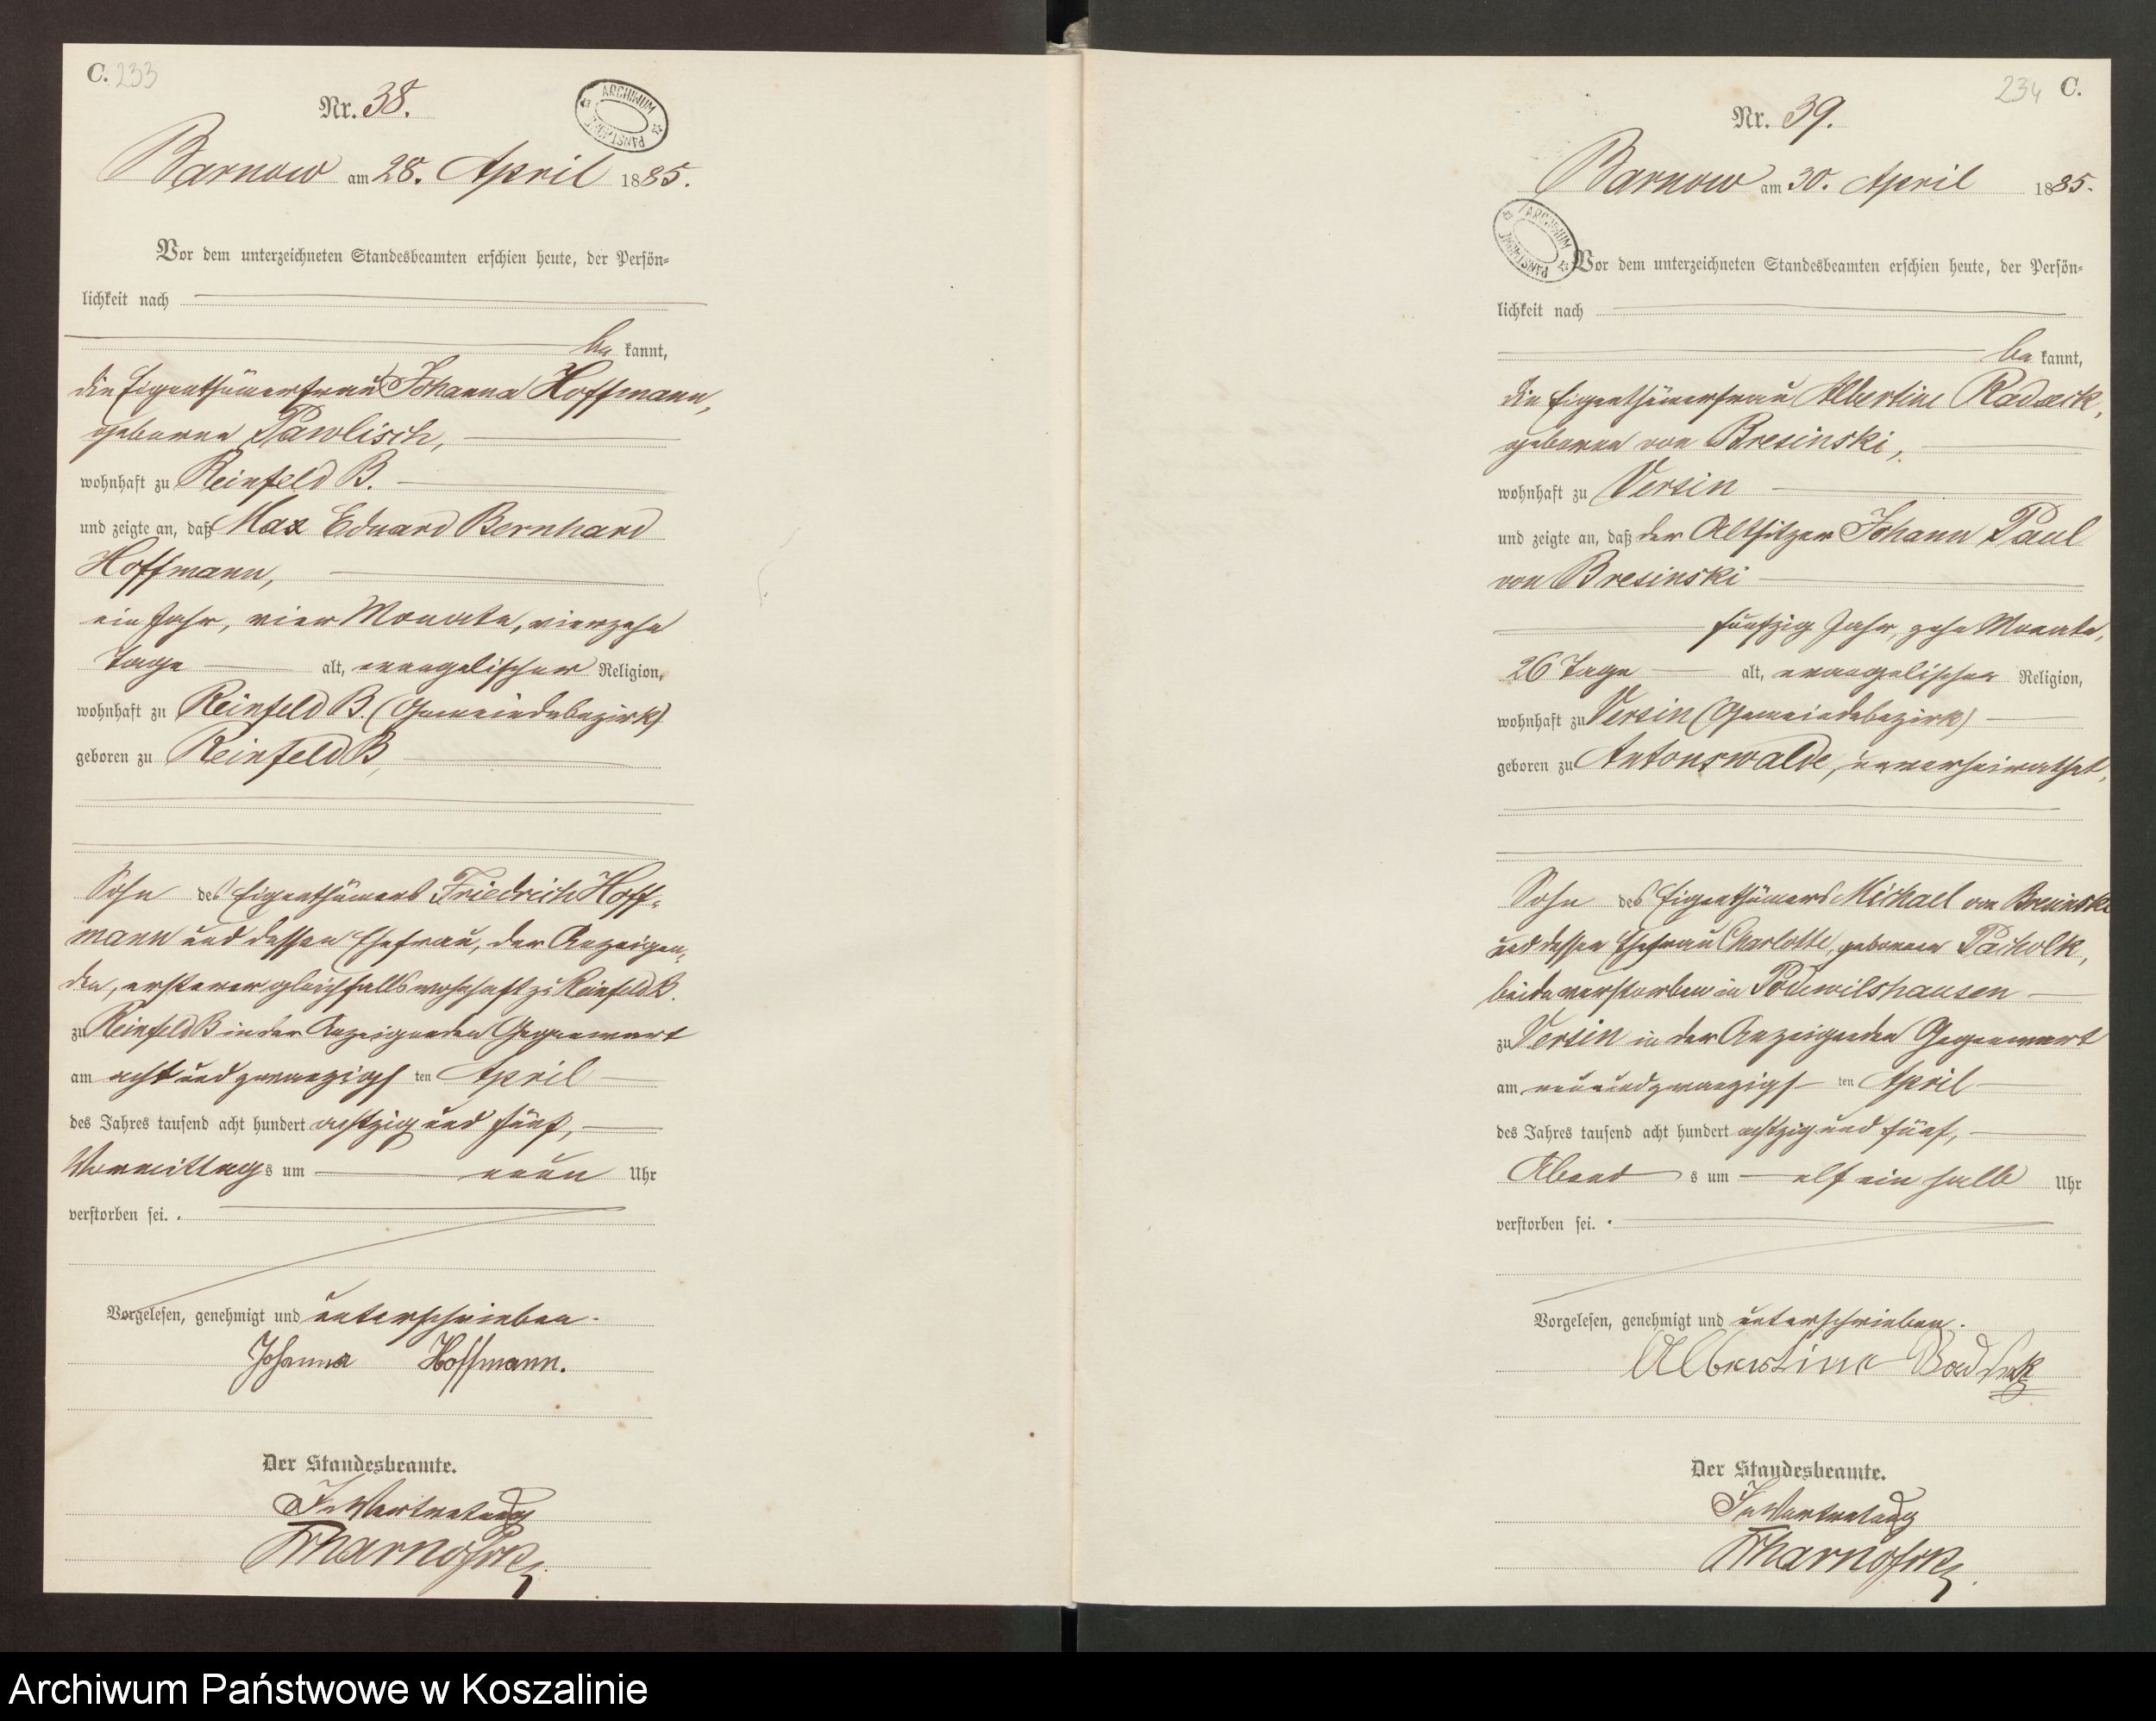 C. 233
Nr. 38.
ARCHIWUM PAŃSTWOWE
Barnow am 28. April 1885.
Vor dem unterzeichneten Standesbeamten erschien heute, der Persön-
lichkeit nach
be kannt,
die Eigenthümerfrau Johanna Hoffmann,
geborene Pawlisch,
wohnhaft zu Reinfeld B.
und zeigte an, daß Max Eduard Bernhard
Hoffmann,
ein Jahr, vier Monate, vierzehn
Tage alt, evangelischer Religion,
wohnhaft zu Reinfeld B. (Gemeindebezirk)
geboren zu Reinfeld B,
Sohn des Eigenthümers Friedrich Hoff-
mann und dessen Ehefrau, der Anzeigen-
den, ersterer gleichfalls wohnhaft zu Reinfeld B.
zu Reinfeld B in der Anzeigenden Gegenwart
am acht und zwanzigst ten April
des Jahres tausend acht hundert achtzig und fünf,
Vormittag s um neun Uhr
verstorben sei.
Vorgelesen, genehmigt und unterschrieben.
Johanna Hoffmann.
Der Standesbeamte.
In Vertretung
234 C.
Nr. 39.
Barnow am 30. April 1885.
ARCHIWUM PAŃSTWOWE
Vor dem unterzeichneten Standesbeamten erschien heute, der Persön-
lichkeit nach
be kannt,
die Eigenthümerfrau Albertine
geborene von Bresinski,
wohnhaft zu Versin
und zeigte an, daß der Altsitzer Johann Paul
von Bresinski
fünfzig Jahr, zehn Monate,
26 Tage alt, evangelischer Religion,
wohnhaft zu Versin (Gemeindebezirk)
geboren zu Antonswalde, unverheirathet,
Sohn des Eigenthümers Michael von Bresinski
und dessen Ehefrau Charlotte, geborenen Pacholk,
beide verstorben in Podewilshausen
zu Versin in der Anzeigenden Gegenwart
am neunundzwanzigst ten April
des Jahres tausend acht hundert achtzig und fünf,
Abend s um elf ein halb Uhr
verstorben sei.
Vorgelesen, genehmigt und unterschrieben.
Albertine
Der Standesbeamte.
In Vertretung
Archiwum Państwowe w Koszalinie